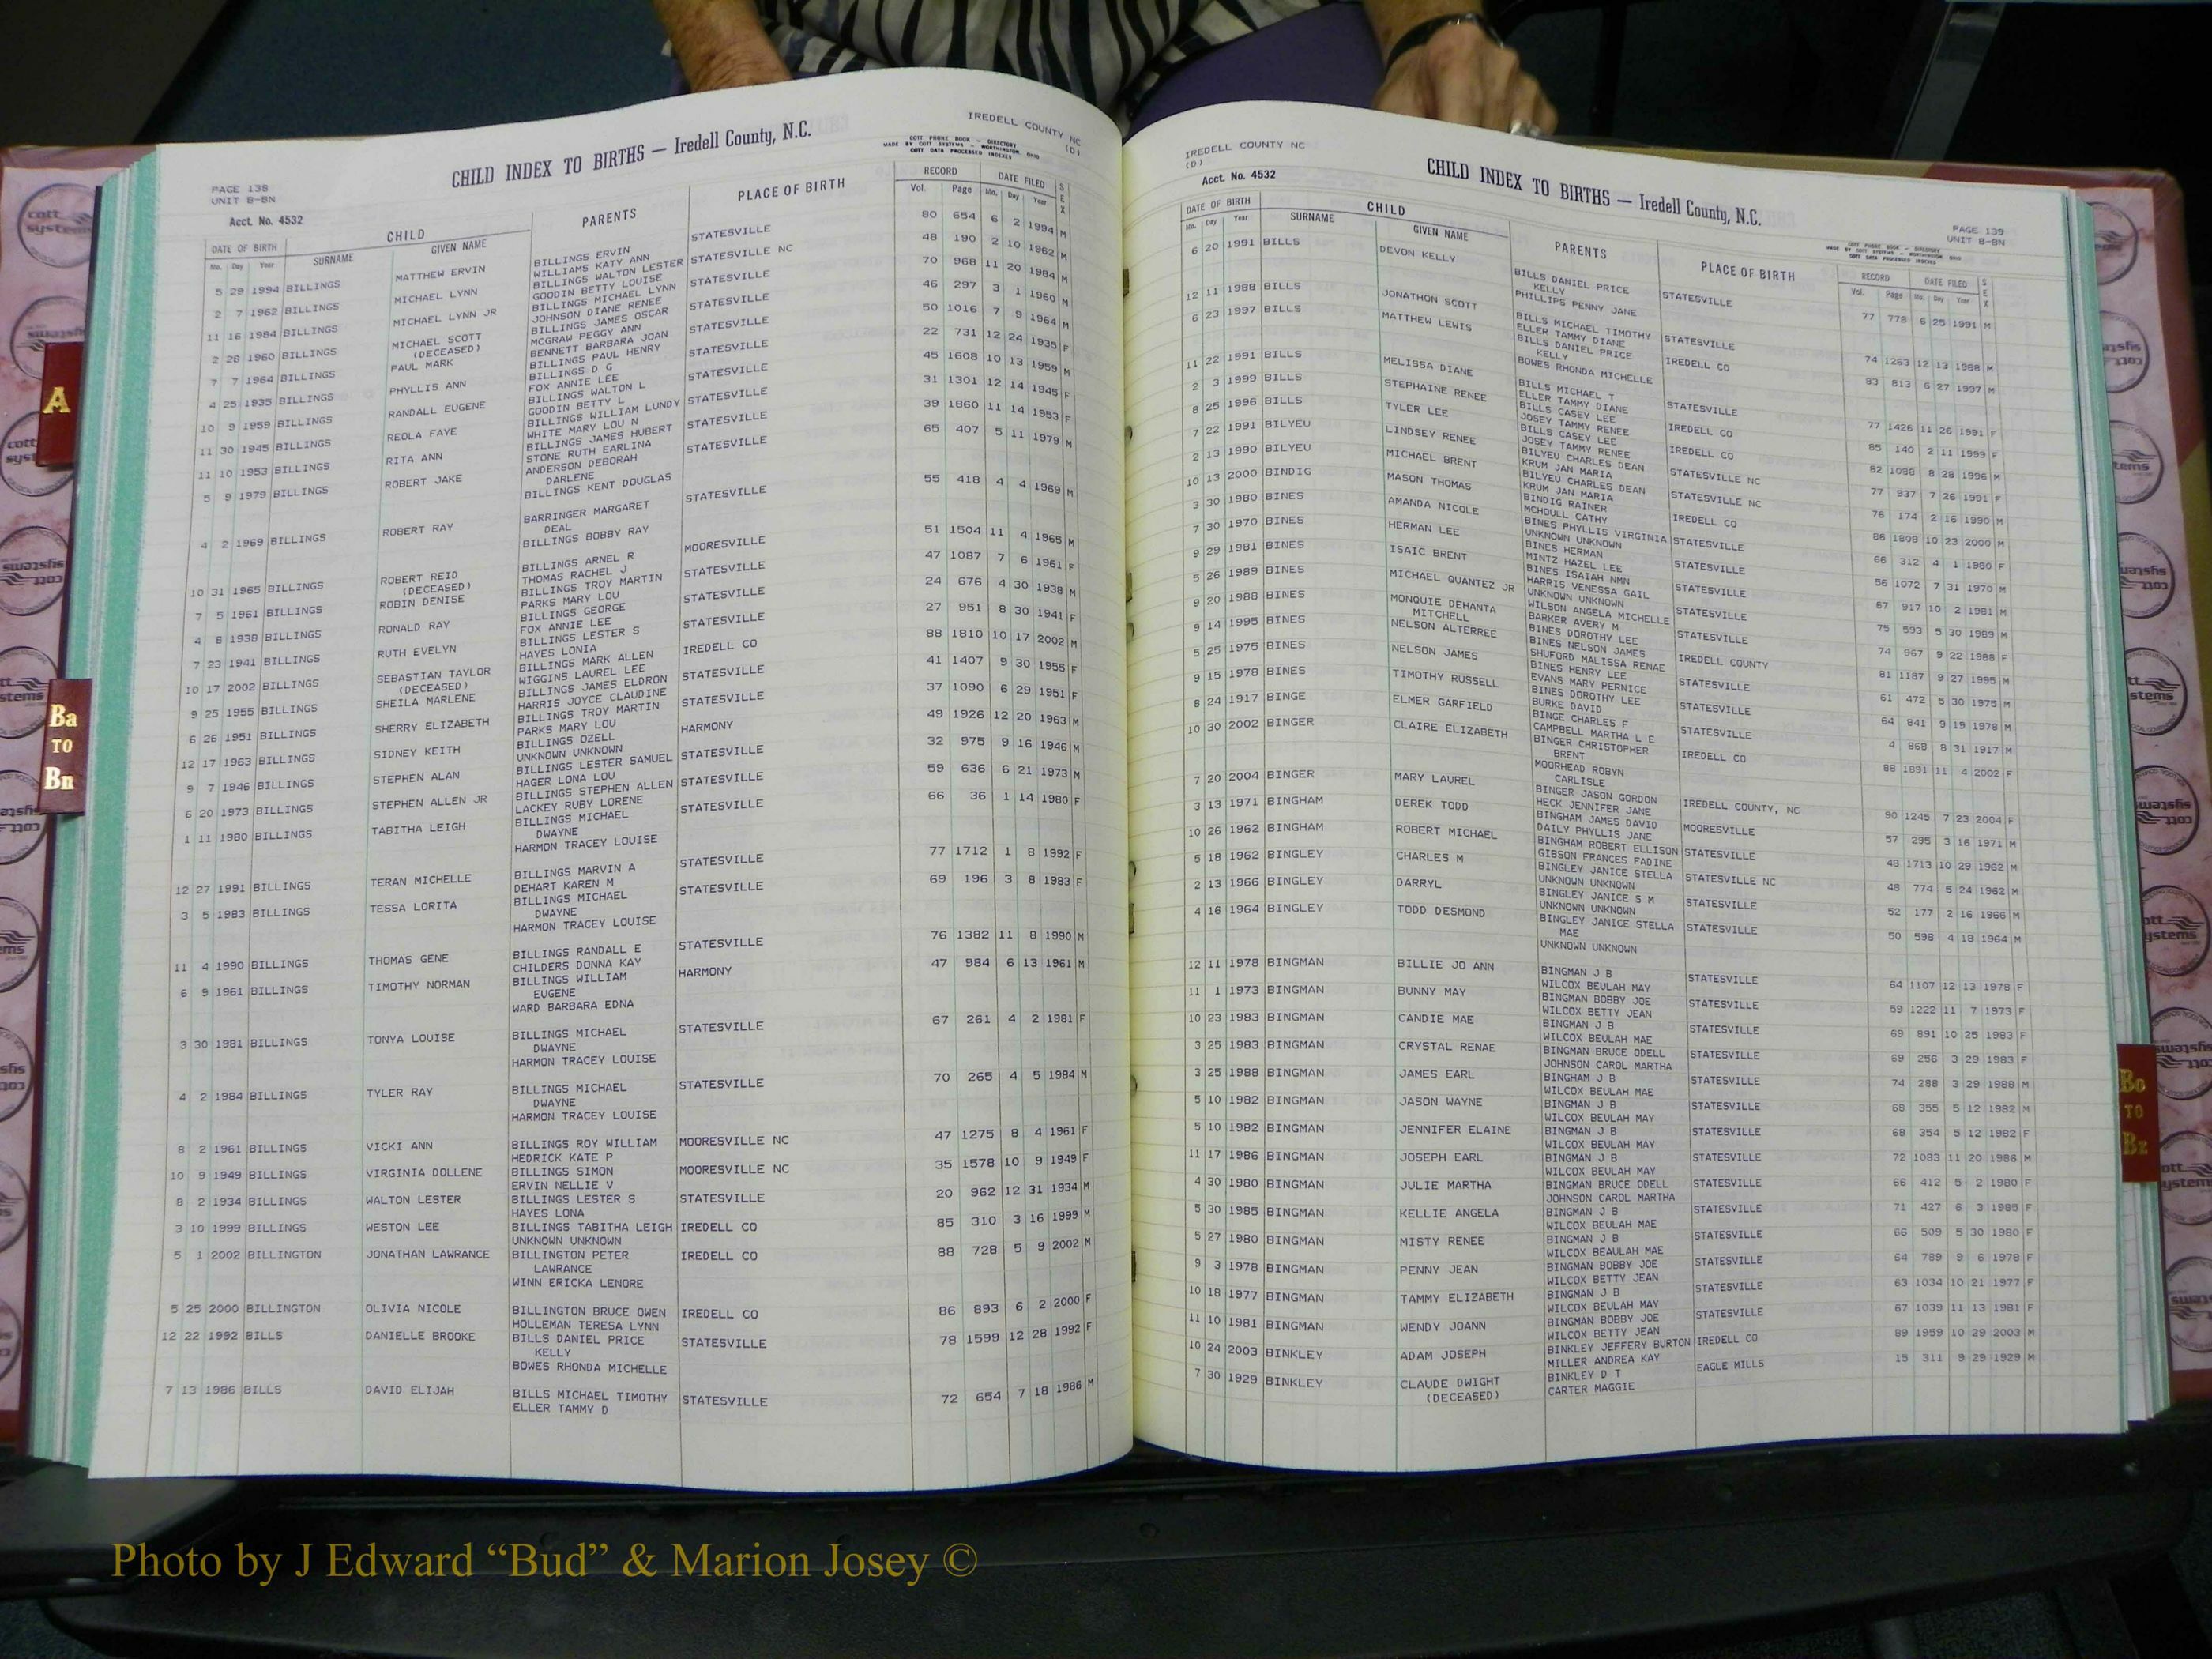 CHILD INDEX TO BIRTHS — Iredell County, N.C.
IREDELL COUNTY NC
(D)
COTT PHONE BOOK - DIRECTORY
MADE BY COTT SYSTEMS - WORTHINGTON OHIO
COTT DATA PROCESSED INDEXES
PAGE 138
UNIT B-BN
Acct. No. 4532
DATE OF BIRTH CHILD PARENTS PLACE OF BIRTH RECORD DATE FILED SEX
Mo. Day Year SURNAME GIVEN NAME Vol. Page Mo. Day Year
5 29 1994 BILLINGS MATTHEW ERVIN BILLINGS ERVIN STATESVILLE 80 654 6 2 1994 M
WILLIAMS KATY ANN
2 7 1962 BILLINGS MICHAEL LYNN BILLINGS WALTON LESTER STATESVILLE NC 48 190 2 10 1962 M
GOODIN BETTY LOUISE
11 16 1984 BILLINGS MICHAEL LYNN JR BILLINGS MICHAEL LYNN STATESVILLE 70 968 11 20 1984 M
JOHNSON DIANE RENEE
2 28 1960 BILLINGS MICHAEL SCOTT BILLINGS JAMES OSCAR STATESVILLE 46 297 3 1 1960 M
(DECEASED) MCGRAW PEGGY ANN
7 7 1964 BILLINGS PAUL MARK BENNETT BARBARA JOAN STATESVILLE 50 1016 7 9 1964 M
BILLINGS PAUL HENRY
4 25 1935 BILLINGS PHYLLIS ANN BILLINGS D G STATESVILLE 22 731 12 24 1935 F
FOX ANNIE LEE
10 9 1959 BILLINGS RANDALL EUGENE BILLINGS WALTON L STATESVILLE 45 1608 10 13 1959 M
GOODIN BETTY L
11 30 1945 BILLINGS REOLA FAYE BILLINGS WILLIAM LUNDY STATESVILLE 31 1301 12 14 1945 F
WHITE MARY LOU N
11 10 1953 BILLINGS RITA ANN BILLINGS JAMES HUBERT STATESVILLE 39 1860 11 14 1953 F
STONE RUTH EARLINA
5 9 1979 BILLINGS ROBERT JAKE ANDERSON DEBORAH STATESVILLE 65 407 5 11 1979 M
DARLENE
BILLINGS KENT DOUGLAS
4 2 1969 BILLINGS ROBERT RAY BARRINGER MARGARET STATESVILLE 55 418 4 4 1969 M
DEAL
BILLINGS BOBBY RAY
10 31 1965 BILLINGS ROBERT REID BILLINGS ARNEL R MOORESVILLE 51 1504 11 4 1965 M
(DECEASED) THOMAS RACHEL J
7 5 1961 BILLINGS ROBIN DENISE BILLINGS TROY MARTIN STATESVILLE 47 1087 7 6 1961 F
PARKS MARY LOU
4 8 1938 BILLINGS RONALD RAY BILLINGS GEORGE STATESVILLE 24 676 4 30 1938 M
FOX ANNIE LEE
7 23 1941 BILLINGS RUTH EVELYN BILLINGS LESTER S STATESVILLE 27 951 8 30 1941 F
HAYES LONIA
10 17 2002 BILLINGS SEBASTIAN TAYLOR BILLINGS MARK ALLEN IREDELL CO 88 1810 10 17 2002 M
(DECEASED) WIGGINS LAUREL LEE
9 25 1955 BILLINGS SHEILA MARLENE BILLINGS JAMES ELDRON STATESVILLE 41 1407 9 30 1955 F
HARRIS JOYCE CLAUDINE
6 26 1951 BILLINGS SHERRY ELIZABETH BILLINGS TROY MARTIN STATESVILLE 37 1090 6 29 1951 F
PARKS MARY LOU
12 17 1963 BILLINGS SIDNEY KEITH BILLINGS OZELL HARMONY 49 1926 12 20 1963 M
UNKNOWN UNKNOWN
9 7 1946 BILLINGS STEPHEN ALAN BILLINGS LESTER SAMUEL STATESVILLE 32 975 9 16 1946 M
HAGER LONA LOU
6 20 1973 BILLINGS STEPHEN ALLEN JR BILLINGS STEPHEN ALLEN STATESVILLE 59 636 6 21 1973 M
LACKEY RUBY LORENE
1 11 1980 BILLINGS TABITHA LEIGH BILLINGS MICHAEL STATESVILLE 66 36 1 14 1980 F
DWAYNE
HARMON TRACEY LOUISE
12 27 1991 BILLINGS TERAN MICHELLE BILLINGS MARVIN A STATESVILLE 77 1712 1 8 1992 F
DEHART KAREN M
3 5 1983 BILLINGS TESSA LORITA BILLINGS MICHAEL STATESVILLE 69 196 3 8 1983 F
DWAYNE
HARMON TRACEY LOUISE
11 4 1990 BILLINGS THOMAS GENE BILLINGS RANDALL E STATESVILLE 76 1382 11 8 1990 M
CHILDERS DONNA KAY
6 9 1961 BILLINGS TIMOTHY NORMAN BILLINGS WILLIAM HARMONY 47 984 6 13 1961 M
EUGENE
WARD BARBARA EDNA
3 30 1981 BILLINGS TONYA LOUISE BILLINGS MICHAEL STATESVILLE 67 261 4 2 1981 F
DWAYNE
HARMON TRACEY LOUISE
4 2 1984 BILLINGS TYLER RAY BILLINGS MICHAEL STATESVILLE 70 265 4 5 1984 M
DWAYNE
HARMON TRACEY LOUISE
8 2 1961 BILLINGS VICKI ANN BILLINGS ROY WILLIAM MOORESVILLE NC 47 1275 8 4 1961 F
HEDRICK KATE P
10 9 1949 BILLINGS VIRGINIA DOLLENE BILLINGS SIMON MOORESVILLE NC 35 1578 10 9 1949 F
ERVIN NELLIE V
8 2 1934 BILLINGS WALTON LESTER BILLINGS LESTER S STATESVILLE 20 962 12 31 1934 M
HAYES LONA
3 10 1999 BILLINGS WESTON LEE BILLINGS TABITHA LEIGH IREDELL CO 85 310 3 16 1999 M
UNKNOWN UNKNOWN
5 1 2002 BILLINGTON JONATHAN LAWRANCE BILLINGTON PETER IREDELL CO 88 728 5 9 2002 M
LAWRANCE
WINN ERICKA LENORE
5 25 2000 BILLINGTON OLIVIA NICOLE BILLINGTON BRUCE OWEN IREDELL CO 86 893 6 2 2000 F
HOLLEMAN TERESA LYNN
12 22 1992 BILLS DANIELLE BROOKE BILLS DANIEL PRICE STATESVILLE 78 1599 12 28 1992 F
KELLY
BOWES RHONDA MICHELLE
7 13 1986 BILLS DAVID ELIJAH BILLS MICHAEL TIMOTHY STATESVILLE 72 654 7 18 1986 M
ELLER TAMMY D
IREDELL COUNTY NC
(D)
Acct. No. 4532
CHILD INDEX TO BIRTHS — Iredell County, N.C.
PAGE 139
UNIT B-BN
COTT PHONE BOOK - DIRECTORY
MADE BY COTT SYSTEMS - WORTHINGTON OHIO
COTT DATA PROCESSED INDEXES
DATE OF BIRTH CHILD PARENTS PLACE OF BIRTH RECORD DATE FILED SEX
Mo. Day Year SURNAME GIVEN NAME Vol. Page Mo. Day Year
6 20 1991 BILLS DEVON KELLY BILLS DANIEL PRICE STATESVILLE 77 778 6 25 1991 M
KELLY
PHILLIPS PENNY JANE
12 11 1988 BILLS JONATHON SCOTT BILLS MICHAEL TIMOTHY STATESVILLE 74 1263 12 13 1988 M
ELLER TAMMY DIANE
6 23 1997 BILLS MATTHEW LEWIS BILLS DANIEL PRICE IREDELL CO 83 813 6 27 1997 M
KELLY
BOWES RHONDA MICHELLE
11 22 1991 BILLS MELISSA DIANE BILLS MICHAEL T STATESVILLE 77 1426 11 26 1991 F
ELLER TAMMY DIANE
2 3 1999 BILLS STEPHAINE RENEE BILLS CASEY LEE IREDELL CO 85 140 2 11 1999 F
JOSEY TAMMY RENEE
8 25 1996 BILLS TYLER LEE BILLS CASEY LEE IREDELL CO 82 1088 8 28 1996 M
JOSEY TAMMY RENEE
7 22 1991 BILYEU LINDSEY RENEE BILYEU CHARLES DEAN STATESVILLE NC 77 937 7 26 1991 F
KRUM JAN MARIA
2 13 1990 BILYEU MICHAEL BRENT BILYEU CHARLES DEAN STATESVILLE NC 76 174 2 16 1990 M
KRUM JAN MARIA
10 13 2000 BINDIG MASON THOMAS BINDIG RAINER IREDELL CO 86 1808 10 23 2000 M
MCHOULL CATHY
3 30 1980 BINES AMANDA NICOLE BINES PHYLLIS VIRGINIA STATESVILLE 66 312 4 1 1980 F
UNKNOWN UNKNOWN
7 30 1970 BINES HERMAN LEE BINES HERMAN STATESVILLE 56 1072 7 31 1970 M
MINTZ HAZEL LEE
9 29 1981 BINES ISAIC BRENT BINES ISAIAH NMN STATESVILLE 67 917 10 2 1981 M
HARRIS VENESSA GAIL
5 26 1989 BINES MICHAEL QUANTEZ JR UNKNOWN UNKNOWN STATESVILLE 75 593 5 30 1989 M
WILSON ANGELA MICHELLE
9 20 1988 BINES MONQUIE DEHANTA BARKER AVERY M IREDELL COUNTY 74 967 9 22 1988 F
MITCHELL BINES DOROTHY LEE
9 14 1995 BINES NELSON ALTERREE BINES NELSON JAMES STATESVILLE 81 1187 9 27 1995 M
SHUFORD MALISSA RENAE
5 25 1975 BINES NELSON JAMES BINES HENRY LEE STATESVILLE 61 472 5 30 1975 M
EVANS MARY PERNICE
9 15 1978 BINES TIMOTHY RUSSELL BINES DOROTHY LEE STATESVILLE 64 841 9 19 1978 M
BURKE DAVID
8 24 1917 BINGE ELMER GARFIELD BINGE CHARLES F 4 868 8 31 1917 M
CAMPBELL MARTHA L E
10 30 2002 BINGER CLAIRE ELIZABETH BINGER CHRISTOPHER IREDELL CO 88 1891 11 4 2002 F
BRENT
MOORHEAD ROBYN
CARLISLE
7 20 2004 BINGER MARY LAUREL BINGER JASON GORDON IREDELL COUNTY, NC 90 1245 7 23 2004 F
HECK JENNIFER JANE
3 13 1971 BINGHAM DEREK TODD BINGHAM JAMES DAVID MOORESVILLE 57 295 3 16 1971 M
DAILY PHYLLIS JANE
10 26 1962 BINGHAM ROBERT MICHAEL BINGHAM ROBERT ELLISON STATESVILLE 48 1713 10 29 1962 M
GIBSON FRANCES FADINE
5 18 1962 BINGLEY CHARLES M BINGLEY JANICE STELLA STATESVILLE NC 48 774 5 24 1962 M
UNKNOWN UNKNOWN
2 13 1966 BINGLEY DARRYL BINGLEY JANICE S M STATESVILLE 52 177 2 16 1966 M
UNKNOWN UNKNOWN
4 16 1964 BINGLEY TODD DESMOND BINGLEY JANICE STELLA STATESVILLE 50 598 4 18 1964 M
MAE
UNKNOWN UNKNOWN
12 11 1978 BINGMAN BILLIE JO ANN BINGMAN J B STATESVILLE 64 1107 12 13 1978 F
WILCOX BEULAH MAY
11 1 1973 BINGMAN BUNNY MAY BINGMAN BOBBY JOE STATESVILLE 59 1222 11 7 1973 F
WILCOX BETTY JEAN
10 23 1983 BINGMAN CANDIE MAE BINGMAN J B STATESVILLE 69 891 10 25 1983 F
WILCOX BEULAH MAE
3 25 1983 BINGMAN CRYSTAL RENAE BINGMAN BRUCE ODELL STATESVILLE 69 256 3 29 1983 F
JOHNSON CAROL MARTHA
3 25 1988 BINGMAN JAMES EARL BINGHAM J B STATESVILLE 74 288 3 29 1988 M
WILCOX BEULAH MAE
5 10 1982 BINGMAN JASON WAYNE BINGMAN J B STATESVILLE 68 355 5 12 1982 M
WILCOX BEULAH MAY
5 10 1982 BINGMAN JENNIFER ELAINE BINGMAN J B STATESVILLE 68 354 5 12 1982 F
WILCOX BEULAH MAY
11 17 1986 BINGMAN JOSEPH EARL BINGMAN J B STATESVILLE 72 1083 11 20 1986 M
WILCOX BEULAH MAY
4 30 1980 BINGMAN JULIE MARTHA BINGMAN BRUCE ODELL STATESVILLE 66 412 5 2 1980 F
JOHNSON CAROL MARTHA
5 30 1985 BINGMAN KELLIE ANGELA BINGMAN J B STATESVILLE 71 427 6 3 1985 F
WILCOX BEULAH MAE
5 27 1980 BINGMAN MISTY RENEE BINGMAN J B STATESVILLE 66 509 5 30 1980 F
WILCOX BEAULAH MAE
9 3 1978 BINGMAN PENNY JEAN BINGMAN BOBBY JOE STATESVILLE 64 789 9 6 1978 F
WILCOX BETTY JEAN
10 18 1977 BINGMAN TAMMY ELIZABETH BINGMAN J B STATESVILLE 63 1034 10 21 1977 F
WILCOX BEULAH MAY
11 10 1981 BINGMAN WENDY JOANN BINGMAN BOBBY JOE STATESVILLE 67 1039 11 13 1981 F
WILCOX BETTY JEAN
10 24 2003 BINKLEY ADAM JOSEPH BINKLEY JEFFERY BURTON IREDELL CO 89 1959 10 29 2003 M
MILLER ANDREA KAY
7 30 1929 BINKLEY CLAUDE DWIGHT BINKLEY D T EAGLE MILLS 15 311 9 29 1929 M
(DECEASED) CARTER MAGGIE
A
Ba
TO
Bn
Bo
TO
Bz
cott
systems
Photo by J Edward “Bud” & Marion Josey ©